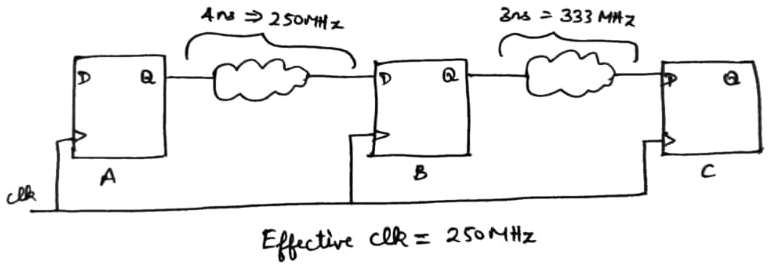 4ns ⇒ 250MHz
3ns = 333MHz
D Q
D Q
D Q
A
B
C
clk
Effective clk = 250MHz